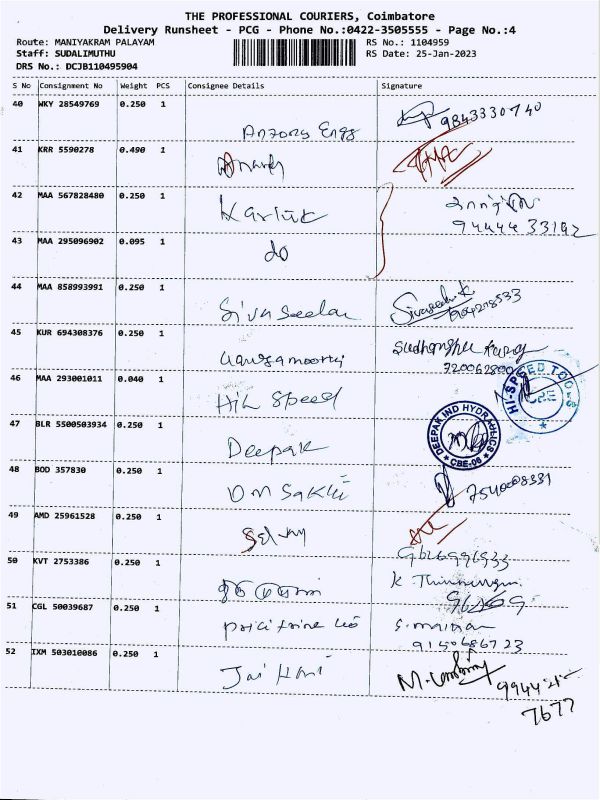 THE PROFESSIONAL COURIERS, Coimbatore
Delivery Runsheet - PCG - Phone No.:0422-3505555 - Page No.:4
Route: MANIYAKRAM PALAYAM RS No.: 1104959
Staff: SUDALIMUTHU RS Date: 25-Jan-2023
DRS No.: DCJB110495904
S No Consignment No Weight PCS Consignee Details Signature
40 WKY 28549769 0.250 1
Antony Engg 9843330740
41 KRR 5590278 0.490 1
Anandh
42 MAA 567828480 0.250 1
Kartik
94444 33192
43 MAA 295096902 0.095 1
do
44 MAA 858993991 0.250 1
Siva Seelan Sivaseelan K
45 KUR 694308376 0.250 1
46 MAA 293001011 0.040 1
Hi Speed HI-SPEED TOOLS CBE
47 BLR 5500503934 0.250 1
Deepak DEEPAK IND HYDRAULICS * CBE-06 *
48 BOD 357830 0.250 1
Om Sakthi
49 AMD 25961528 0.250 1
50 KVT 2753386 0.250 1
51 CGL 50039687 0.250 1
9150686723
52 IXM 503010086 0.250 1
Jai Hari
7677